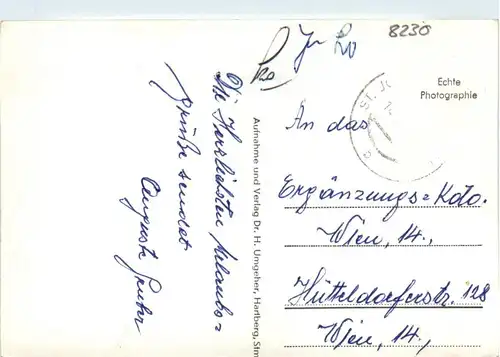 8230
Echte
Photographie
St. J
Die Herzlichsten Urlaubs=
grüße sendet
Auguste Gruber
Aufnahme und Verlag Dr. H. Umgeher, Hartberg, Stm
An das
Ergänzungs=Kdo.
Wien, 14.,
Hütteldorferstr. 128
Wien, 14.,